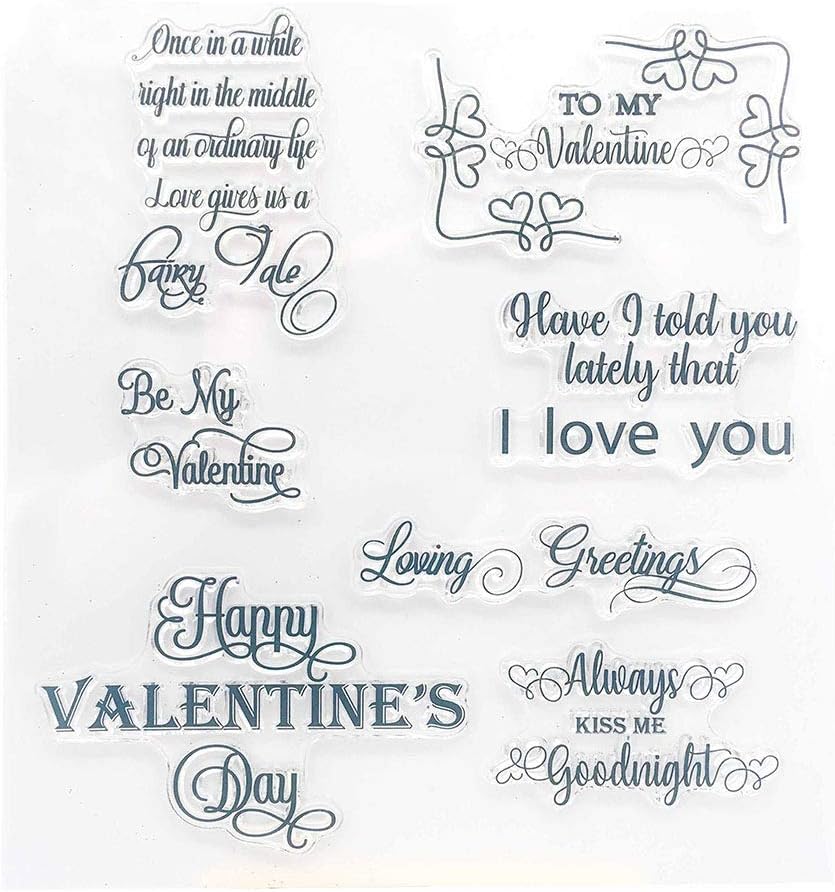 Once in a while
right in the middle
of an ordinary life
Love gives us a
Fairy Tale
TO MY
Valentine
Have I told you
lately that
I love you
Be My
Valentine
Loving Greetings
Happy
VALENTINE'S
Day
Always
KISS ME
Goodnight